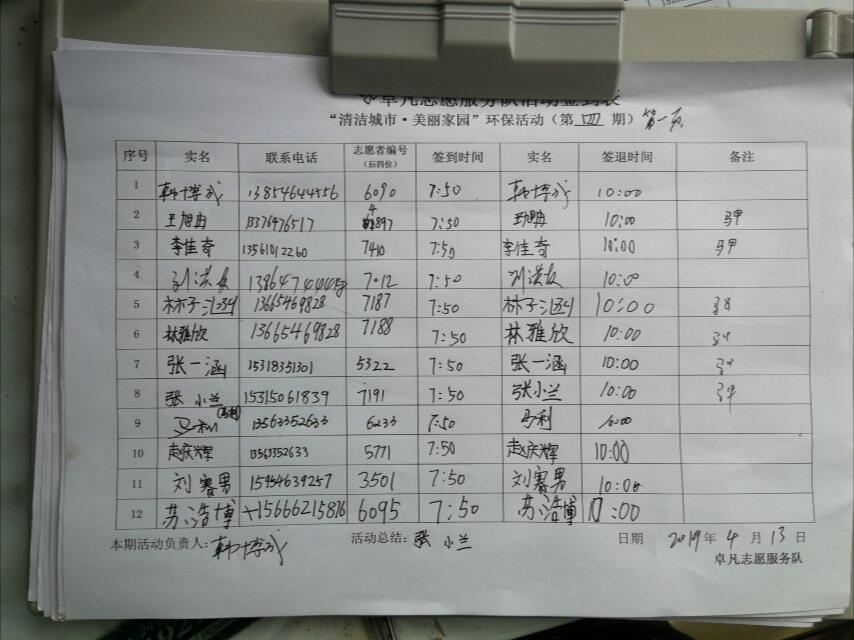 卓凡志愿服务队活动签到表
“清洁城市·美丽家园”环保活动（第 四 期） 第一页
序号 实名 联系电话 志愿者编号（后四位） 签到时间 实名 签退时间 备注
1 韩博成 13854644456 6090 7:50 韩博成 10:00
2 王旭冉 13376476517 4897 7:50 王旭冉 10:00 马甲
3 李佳奇 13561012260 7410 7:50 李佳奇 10:00 马甲
4 7012 7:50 10:00
5 林子 13665469828 7187 7:50 林子 10:00 马甲
6 林雅欣 13665469828 7188 7:50 林雅欣 10:00 马甲
7 张一涵 15318351301 5322 7:50 张一涵 10:00 马甲
8 张小兰 15315061839 7191 7:50 张小兰 10:00 马甲
9 马利 13563352633 6233 7:50 马利 10:00
10 赵庆辉 13563352633 5771 7:50 赵庆辉 10:00
11 刘赛男 15954639257 3501 7:50 刘赛男 10:00
12 苏浩博 15666215876 6095 7:50 苏浩博 :00
本期活动负责人：韩博成 活动总结：张小兰 日期 2019年 4 月 13 日
卓凡志愿服务队